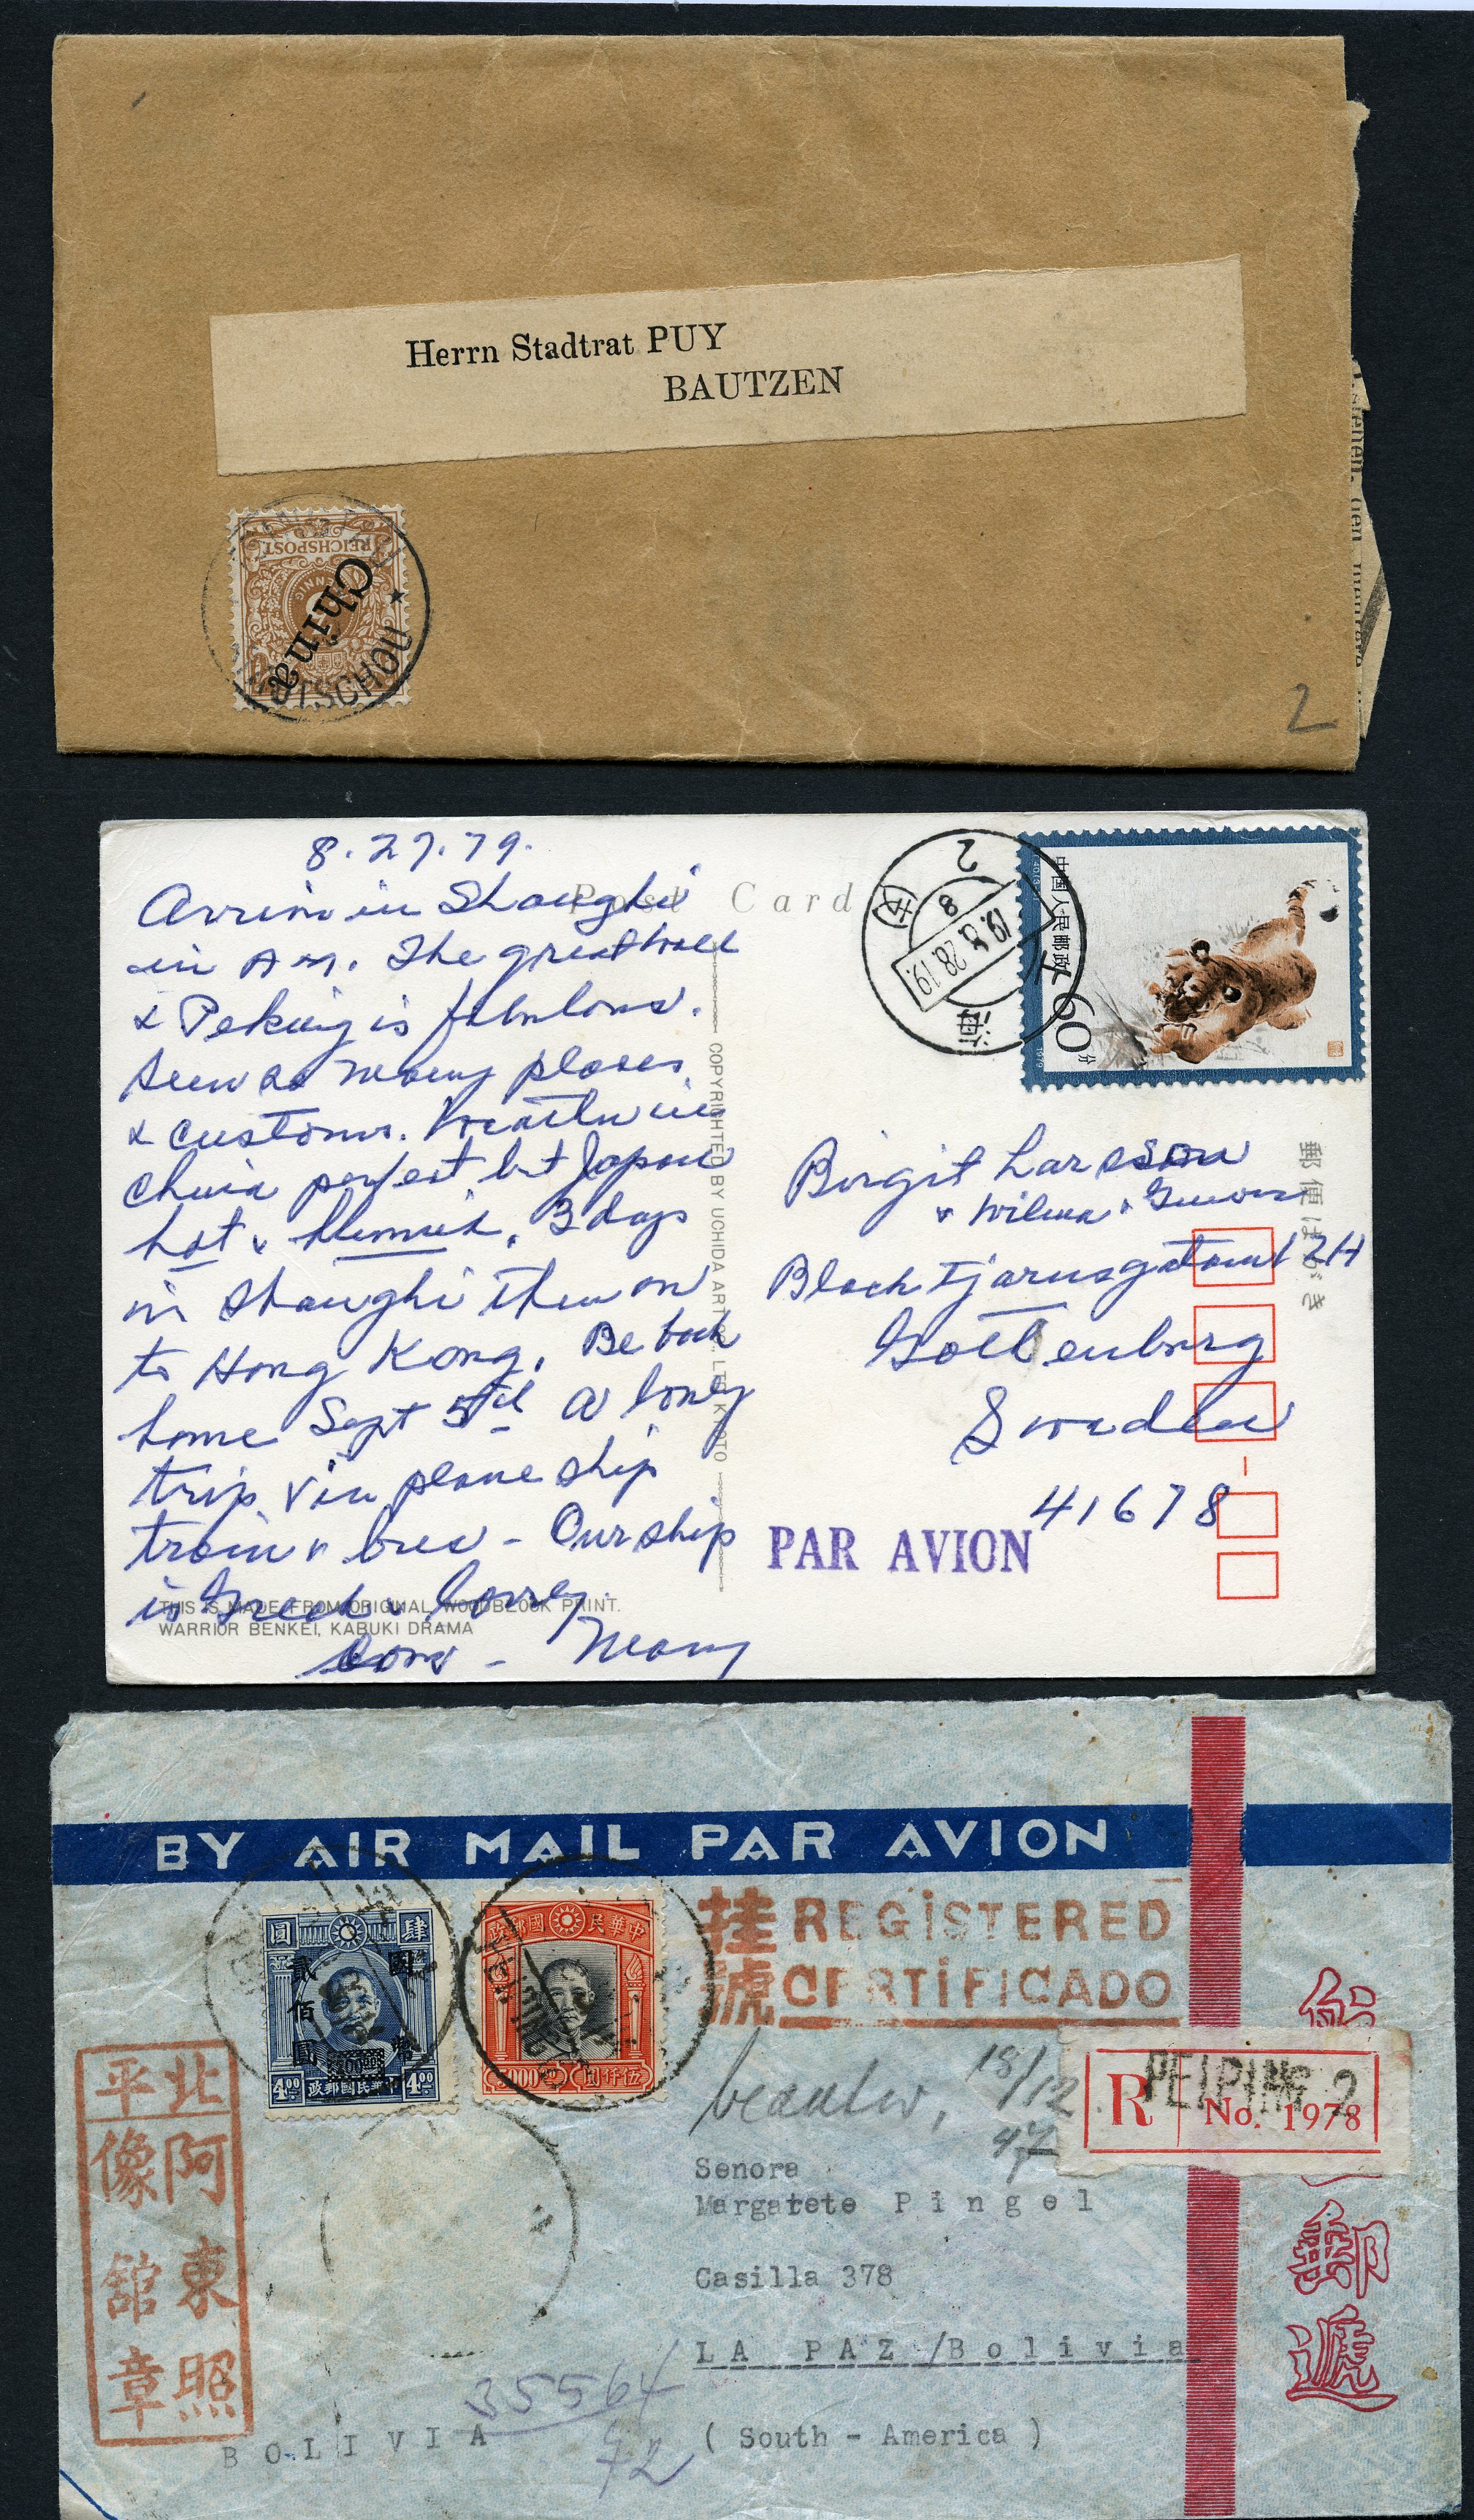 Herrn Stadtrat PUY
BAUTZEN
REICHSPOST
China
TSCHOU
2
8.27.79.
Post Card
in Shanghi
in AM. The great wall
& Peking is fabulous.
Seen so many places
& customs. Weather in
China perfect but Japan
hot & Humid. 3 days
in Shanghi then on
to Hong Kong. Be back
home Sept 5 A long
trip via plane ship
train & bus - Our ship
is Greek & lovely.
THIS IS MADE FROM ORIGINAL WOODBLOCK PRINT.
WARRIOR BENKEI, KABUKI DRAMA
COPYRIGHTED BY UCHIDA ART CO., LTD KYOTO
上海
中国人民邮政
60分
郵便はがき
Birgit Larsson
& Wilma &
12H
Gothenburg
Sweden
41678
PAR AVION
BY AIR MAIL PAR AVION
挂 REGISTERED
號 CERTIFICADO
圓 肆
國幣
貳佰圓
20000
400 政郵國民華中 400
政郵國民華中
5000 圓仟伍
PEIPING
18/12
47
PEIPING 2
R No. 1978
Senora
Margatete Pingel
Casilla 378
LA PAZ /Bolivia
( South - America )
BOLIVIA
35564
42
北平
阿東照
像舘章
郵遞